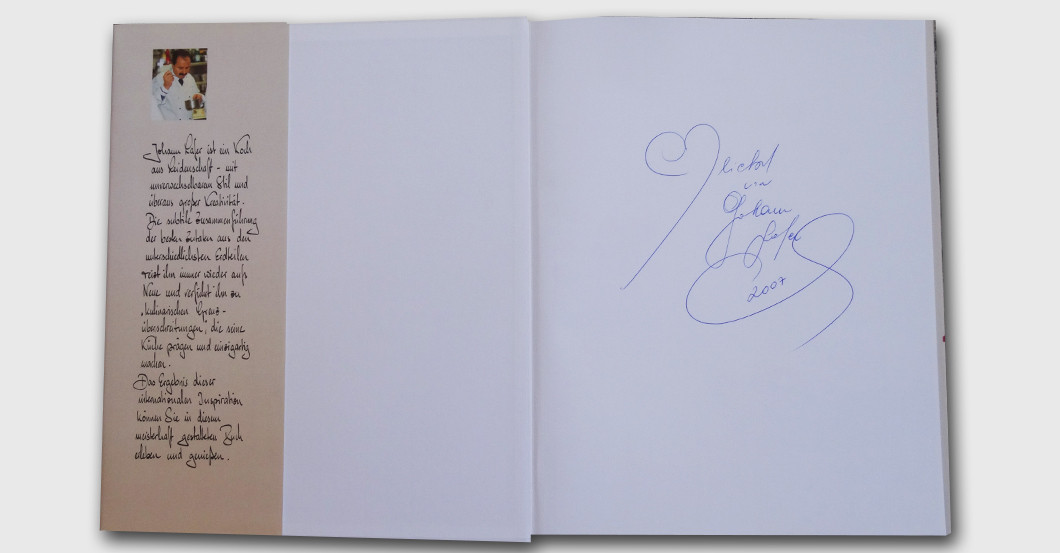 Johann Lafer ist ein Koch
aus Leidenschaft - mit
unverwechselbarem Stil und
überaus großer Kreativität.
Die subtile Zusammenführung
der besten Zutaten aus den
unterschiedlichsten Erdteilen
reizt ihn immer wieder aufs
Neue und verführt ihn zu
„kulinarischen Grenz-
überschreitungen", die seine
Küche prägen und einzigartig
machen.
Das Ergebnis dieser
internationalen Inspiration
können Sie in diesem
meisterhaft gestalteten Buch
erleben und genießen.
von
Johann
Lafer
2007